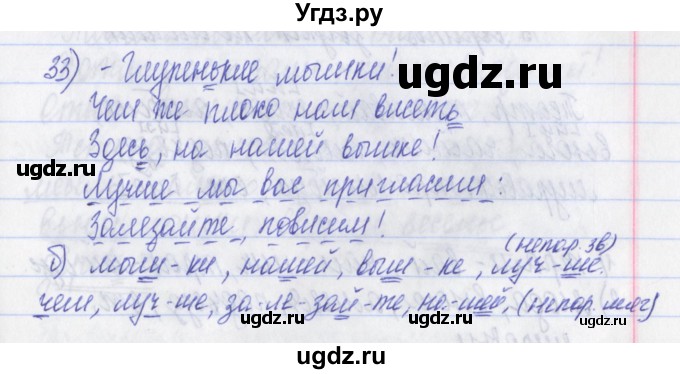 Угдз.ру
33) - Глупенькие мышки!
ugdz.ru
Чем же плохо нам висеть
ugdz.ru
Здесь, на нашей вышке!
ugdz.ru
Лучше мы вас пригласим:
Залезайте, повисим!
ugdz.ru
(непар. зв)
б) мыш-ки, нашей, выш-ке, луч-ше.
ugdz.ru
чем, луч-ше, за-ле-зай-те, на-шей, (непар. мяг)
ugdz.ru
ugdz.ru
ugdz.ru